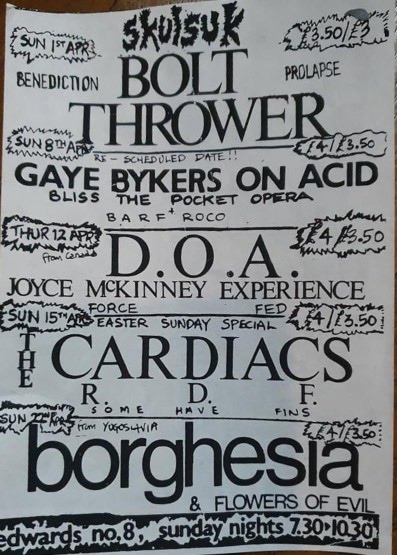 skulsuk
SUN 1ST APR
£3.50/£3
BENEDICTION
BOLT
PROLAPSE
THROWER
SUN 8TH APR
RE-SCHEDULED DATE!!
£4/£3.50
GAYE BYKERS ON ACID
BLISS THE POCKET OPERA
BARF + ROCO
THUR 12 APR
from Canada
D.O.A.
£4/£3.50
JOYCE McKINNEY EXPERIENCE
FORCE FED
SUN 15TH APR
EASTER SUNDAY SPECIAL
£4/£3.50
THE
CARDIACS
R. D. F.
SOME HAVE FINS
SUN 22nd APR
from YUGOSLAVIA
£4/£3.50
borghesia
& FLOWERS OF EVIL
edwards no.8, sunday nights 7.30>10.30